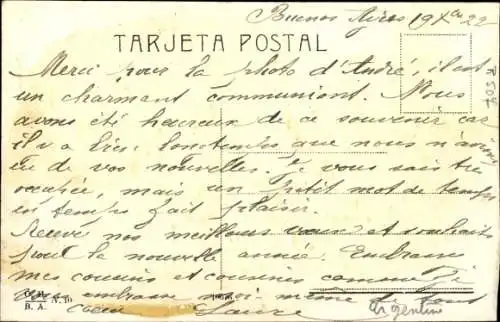 Buenos Aires 19 Xbre 22
TARJETA POSTAL
Merci pour la photo d'André, il est
un charmant communiant. Nous
avons été heureux de ce souvenir car
il y a très longtemps que nous n'avions
eu de vos nouvelles. Je vous sais très
occupée, mais un petit mot de temps
en temps fait plaisir.
Recevez nos meilleurs vœux et souhaits
pour la nouvelle année. Embrasse
mes cousins et cousines comme je
vous embrasse moi-même de tout
cœur Laure
N. 10
B. A.
Argentine